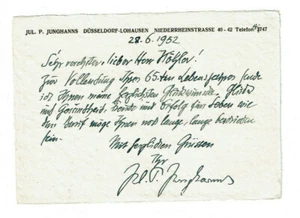 JUL. P. JUNGHANNS DÜSSELDORF-LOHAUSEN NIEDERRHEINSTRASSE 40-42 Telefon
28. 6. 1952
Sehr verehrter, lieber Herr Köhler!
Zur Vollendung Ihres 65ten Lebensjahres sende
ich Ihnen meine herzlichsten Glückwünsche. Glück
und Gesundheit, Freude und Erfolg im Leben wie
im Beruf möge Ihnen noch lange, lange beschieden
sein.
Mit herzlichen Grüssen
Ihr
Jul. P. Junghanns